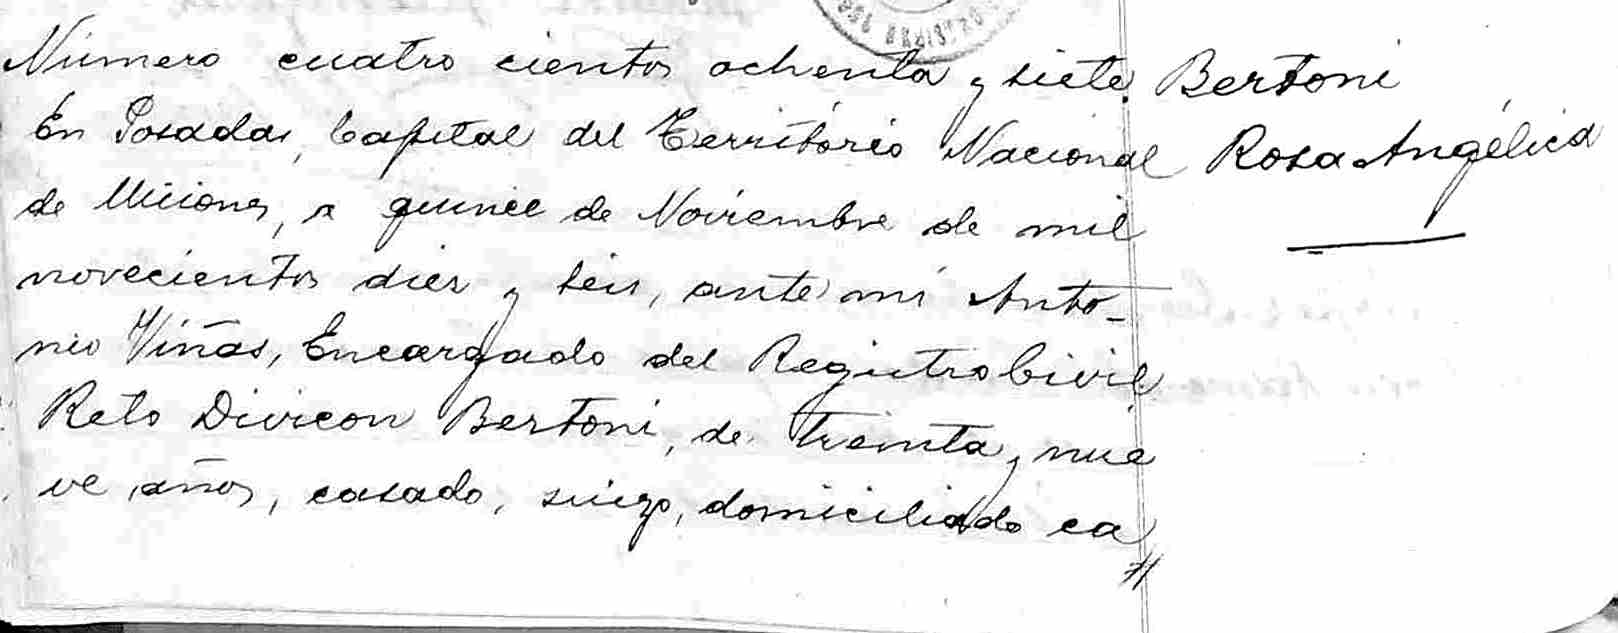 Número cuatro cientos ochenta y siete.
En Posadas, Capital del Território Nacional
de Misiones, a quince de Noviembre de mil
novecientos diez y seis, ante mi Anto-
nio Viñas, Encargado del Registro Civil
Reto Divicon Bertoni, de treinta y nue
ve años, casado, suizo, domiciliado ca
//
Bertoni
Rosa Angélica